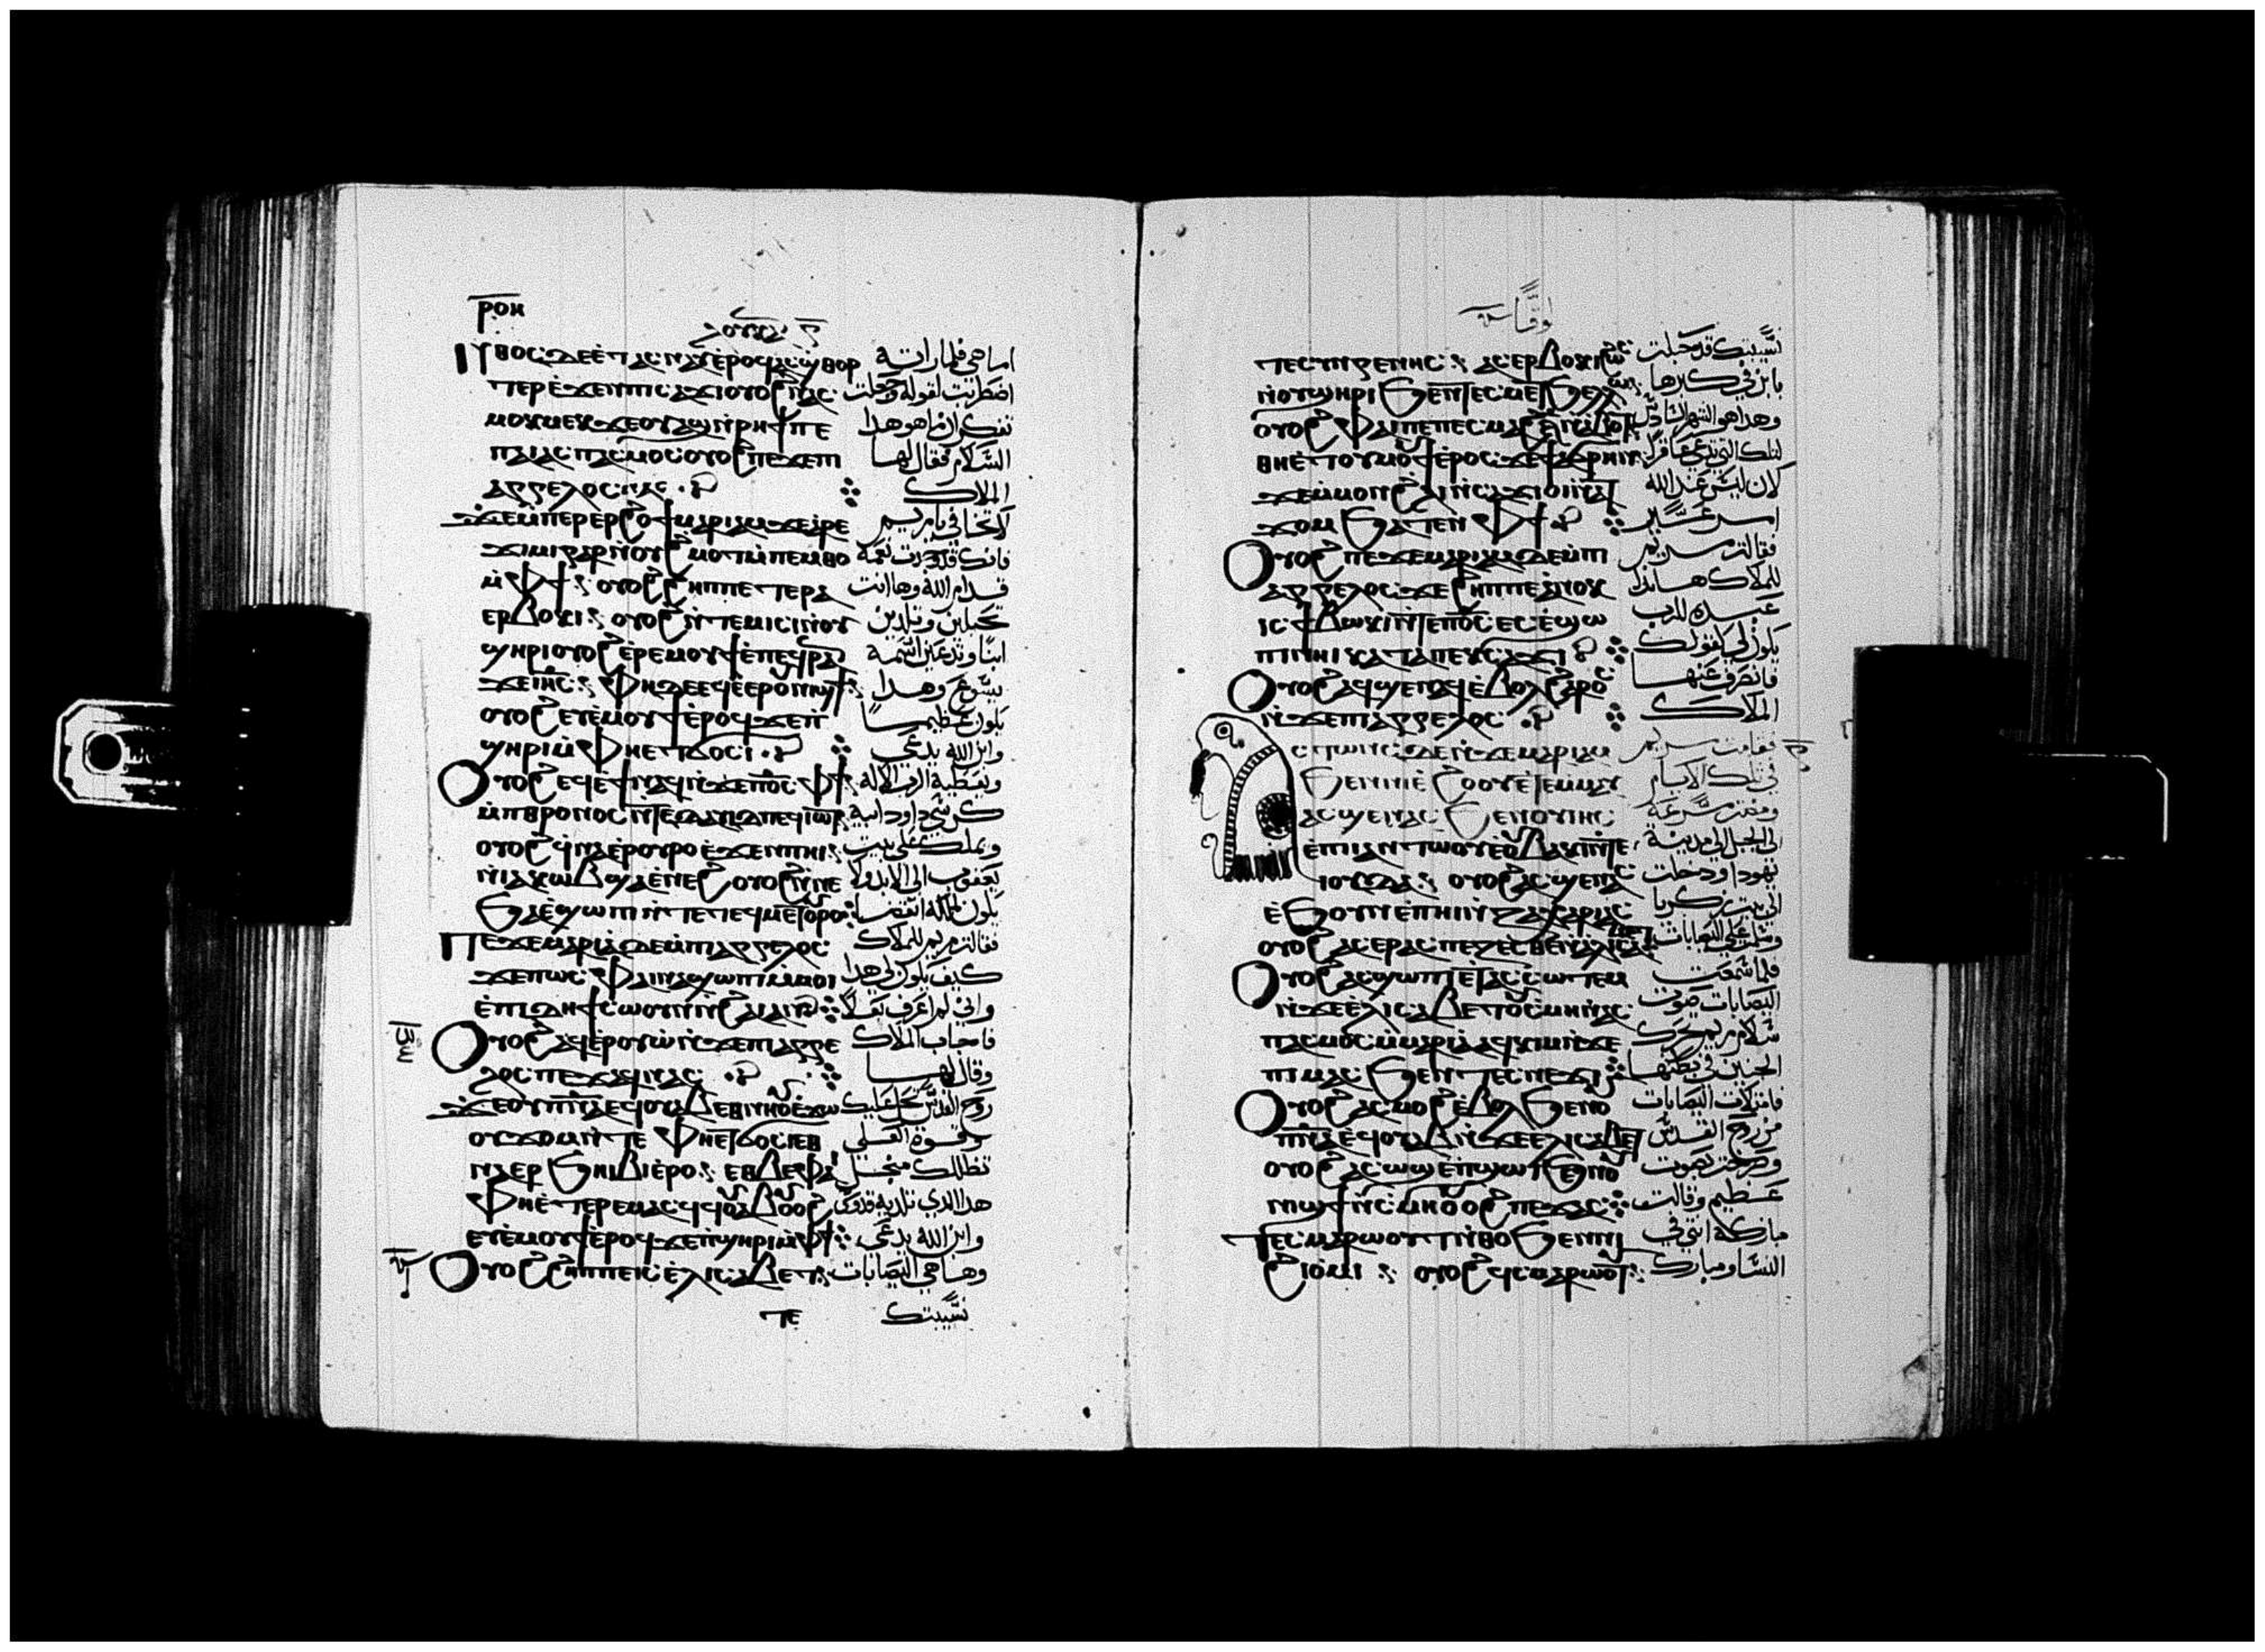 ⲣⲟⲏ
ⲛⲑⲟⲥ ⲇⲉ ⲉⲧⲁⲥⲛⲁⲩ ⲉⲣⲟϥ ⲁⲥϣⲑⲟⲣ اما هي فلما راته
ⲧⲉⲣ ⲉϫⲉⲛ ⲡⲓⲥⲁϫⲓ ⲟⲩⲟϩ ⲛⲁⲥ اضطربت لقوله وجعلت
ⲙⲟⲕⲙⲉⲕ ϫⲉ ⲟⲩⲁϣ ⲛⲣⲏϯ ⲡⲉ تفكر ان ما هو هدا
ⲡⲁⲓⲁⲥⲡⲁⲥⲙⲟⲥ ⲟⲩⲟϩ ⲡⲉϫⲉ ⲡⲓ السلام فقال لها
ⲁⲅⲅⲉⲗⲟⲥ ⲛⲁⲥ الملاك
ϫⲉ ⲙⲡⲉⲣⲉⲣϩⲟϯ ⲙⲁⲣⲓⲁⲙ ⲁⲣⲉ لا تخافي يا مريم
ϫⲓⲙⲓ ⲅⲁⲣ ⲛⲟⲩϩⲙⲟⲧ ⲙⲡⲉⲙⲑⲟ فانك قد وجدت نعمة
ⲙⲫϯ ⲟⲩⲟϩ ϩⲏⲡⲡⲉ ⲧⲉⲣⲁ قدام الله وها انت
ⲉⲣⲃⲟⲕⲓ ⲟⲩⲟϩ ⲛⲧⲉⲙⲓⲥⲓ ⲛⲟⲩ تحبلين وتلدين
ϣⲏⲣⲓ ⲟⲩⲟϩ ⲉⲣⲉⲙⲟⲩϯ ⲉⲡⲉϥⲣⲁⲛ ابنا وتدعين اسمه
ϫⲉ ⲓⲏⲥ ⲫⲁⲓ ⲇⲉ ⲉϥⲉⲉⲣⲟⲩⲛⲓϣϯ يسوع وهدا
ⲟⲩⲟϩ ⲉⲩⲉⲙⲟⲩϯ ⲉⲣⲟϥ ϫⲉ ⲡ يكون عظيما
ϣⲏⲣⲓ ⲙⲫⲏ ⲉⲧϭⲟⲥⲓ وابن الله يدعى
ⲟⲩⲟϩ ⲉϥⲉϯ ⲛⲁϥ ⲛϫⲉ ⲡⲟⲥ ⲫϯ ويعطيه الرب الاله
ⲙⲡⲑⲣⲟⲛⲟⲥ ⲛⲧⲉ ⲇⲁⲇ ⲡⲉϥⲓⲱⲧ كرسي داود ابيه
ⲟⲩⲟϩ ϥⲛⲁⲉⲣⲟⲩⲣⲟ ⲉϫⲉⲛ ⲡⲏⲓ ويملك على بيت
ⲛⲓⲁⲕⲱⲃ ϣⲁ ⲉⲛⲉϩ ⲟⲩⲟϩ ⲛⲛⲉ يعقوب الى الابد ولا
ϧⲁⲉ ϣⲱⲡⲓ ⲛⲧⲉ ⲧⲉϥⲙⲉⲧⲟⲩⲣⲟ يكون لملكه انقضا
ⲡⲉϫⲉ ⲙⲁⲣⲓⲁ ⲇⲉ ⲙⲡⲓⲁⲅⲅⲉⲗⲟⲥ فقالت مريم للملاك
ϫⲉ ⲡⲱⲥ ⲫⲁⲓ ⲛⲁϣⲱⲡⲓ ⲙⲙⲟⲓ كيف يكون لي هدا
ⲉⲡⲓⲇⲏ ϯⲥⲱⲟⲩⲛ ⲛϩⲁⲓ ⲁⲛ واني لم اعرف بعلا
ⲟⲩⲟϩ ⲁϥⲉⲣⲟⲩⲱ ⲛϫⲉ ⲡⲓⲁⲅⲅⲉ فاجاب الملاك
ⲗⲟⲥ ⲡⲉϫⲁϥ ⲛⲁⲥ وقال لها
ϫⲉ ⲟⲩⲡⲛⲁ ⲉϥⲟⲩⲁⲃ ⲉⲑⲛⲏⲟⲩ ⲉϫⲱ روح القدس تحل عليك
ⲟⲩϫⲟⲙ ⲛⲧⲉ ⲫⲏ ⲉⲧϭⲟⲥⲓ ⲉⲑ وقوة العلي
ⲛⲁⲉⲣϧⲏⲓⲃⲓ ⲉⲣⲟ ⲉⲑⲃⲉ ⲫⲁⲓ تظللك من اجل
ⲫⲏ ⲉⲧⲉⲣⲉⲙⲁⲥϥ ϥⲟⲩⲁⲃ ⲟⲩⲟϩ هدا الدي تلديه قدوس
ⲉⲩⲉⲙⲟⲩϯ ⲉⲣⲟϥ ϫⲉ ⲡϣⲏⲣⲓ ⲙⲫϯ وابن الله يدعى
ⲟⲩⲟϩ ϩⲏⲡⲡⲉ ⲓⲥ ⲉⲗⲓⲥⲁⲃⲉⲧ وها هي اليصابات
ⲧⲉ نسيبتك
لوقا
ⲧⲉⲥⲩⲅⲅⲉⲛⲏⲥ ⲁⲥⲉⲣⲃⲟⲕⲓ ϩⲱⲥ نسيبتك قد حبلت
ⲛⲟⲩϣⲏⲣⲓ ϧⲉⲛ ⲧⲉⲥⲙⲉⲧϧⲉⲗⲗⲱ بابن في كبرها
ⲟⲩⲟϩ ⲫⲁⲓ ⲡⲉ ⲡⲉⲥⲙⲁϩ ⲛⲁⲃⲟⲧ وهدا هو الشهر السادس
ⲑⲏ ⲉⲧⲟⲩⲙⲟⲩϯ ⲉⲣⲟⲥ ϫⲉ ϯⲁϭⲣⲏⲛ لتلك التي تدعى عاقرا
ϫⲉ ⲙⲙⲟⲛ ϩⲗⲓ ⲛⲥⲁϫⲓ ⲟⲓ ⲛⲁⲧ لان ليس عند الله
ϫⲟⲙ ϧⲁⲧⲉⲛ ⲫϯ امر عسير
ⲟⲩⲟϩ ⲡⲉϫⲉ ⲙⲁⲣⲓⲁⲙ ⲇⲉ ⲙⲡⲓ فقالت مريم
ⲁⲅⲅⲉⲗⲟⲥ ϫⲉ ϩⲏⲡⲡⲉ ⲁⲛⲟⲕ للملاك هاندا
ⲓⲥ ϯⲃⲱⲕⲓ ⲛⲧⲉ ⲡⲟⲥ ⲉⲥⲉϣⲱ عبده للرب
ⲡⲓ ⲛⲏⲓ ⲕⲁⲧⲁ ⲡⲉⲕⲥⲁϫⲓ يكون لي كقولك
ⲟⲩⲟϩ ⲁϥϣⲉⲛⲁϥ ⲉⲃⲟⲗ ϩⲁⲣⲟⲥ فانصرف عنها
ⲛϫⲉ ⲡⲓⲁⲅⲅⲉⲗⲟⲥ الملاك
ⲁⲥⲧⲱⲛⲥ ⲇⲉ ⲛϫⲉ ⲙⲁⲣⲓⲁⲙ فقامت مريم
ϧⲉⲛ ⲛⲓⲉϩⲟⲟⲩ ⲉⲧⲉⲙⲙⲁⲩ في تلك الايام
ⲁⲥϣⲉⲛⲁⲥ ϧⲉⲛ ⲟⲩⲓⲏⲥ ومضت مسرعة
ⲉⲡⲓⲁⲛⲧⲱⲟⲩ ⲉⲟⲩⲃⲁⲕⲓ ⲛⲧⲉ الى الجبل الى مدينة
ⲓⲟⲩⲇⲁ ⲟⲩⲟϩ ⲁⲥϣⲉⲛⲁⲥ يهودا ودخلت
ⲉϧⲟⲩⲛ ⲉⲡⲏⲓ ⲛⲍⲁⲭⲁⲣⲓⲁⲥ الى بيت زكريا
ⲟⲩⲟϩ ⲁⲥⲉⲣⲁⲥⲡⲁⲍⲉⲥⲑⲉ ⲛⲉⲗⲓⲥⲁⲃⲉⲧ وسلمت على اليصابات
ⲟⲩⲟϩ ⲁⲥϣⲱⲡⲓ ⲉⲧⲁⲥⲥⲱⲧⲉⲙ فلما سمعت
ⲛϫⲉ ⲉⲗⲓⲥⲁⲃⲉⲧ اليصابات صوت
ⲡⲁⲥⲙⲟⲥ ⲙⲙⲁⲣⲓⲁ ⲁϥⲕⲓⲙ ⲛϫⲉ سلام مريم تحرك
ⲡⲓⲙⲁⲥ ϧⲉⲛ ⲧⲉⲥⲛⲉϫⲓ الجنين في بطنها
ⲟⲩⲟϩ ⲁⲥⲙⲟϩ ⲉⲃⲟⲗ ϧⲉⲛ ⲟⲩ فامتلات اليصابات
ⲡⲛⲁ ⲉϥⲟⲩⲁⲃ ⲛϫⲉ ⲉⲗⲓⲥⲁⲃⲉⲧ من روح القدس
ⲟⲩⲟϩ ⲁⲥⲱϣ ⲉⲡϣⲱⲓ ϧⲉⲛ ⲟⲩ وصرخت بصوت
ⲛⲓϣϯ ⲛⲥⲙⲏ ⲟⲩⲟϩ ⲡⲉϫⲁⲥ عظيم وقالت
ⲧⲉⲥⲙⲁⲣⲱⲟⲩⲧ ⲛⲑⲟ ϧⲉⲛ ⲛⲓ مباركة انتي في
ϩⲓⲟⲙⲓ ⲟⲩⲟϩ ϥⲥⲙⲁⲣⲱⲟⲩⲧ النسا ومبارك